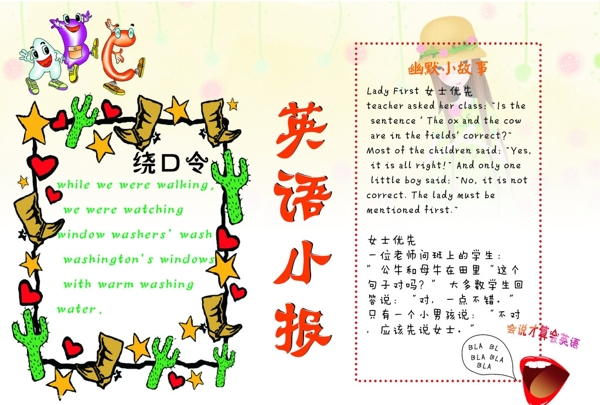 绕口令
while we were walking,
we were watching
window washers' wash
washington's windows
with warm washing
water.
英语小报
幽默小故事
Lady First 女士优先
teacher asked her class: "Is the
sentence ' The ox and the cow
are in the fields' correct?"
Most of the children said: "Yes,
it is all right!" And only one
little boy said: "No, it is not
correct. The lady must be
mentioned first."
女士优先
一位老师问班上的学生：
" 公牛和母牛在田里 "这个
句子对吗？" 大多数学生回
答说： "对，一点不错。"
只有一个小男孩说： "不对
，应该先说女士。"
会说才算会英语
BLA BL
BLA BLA
BLA